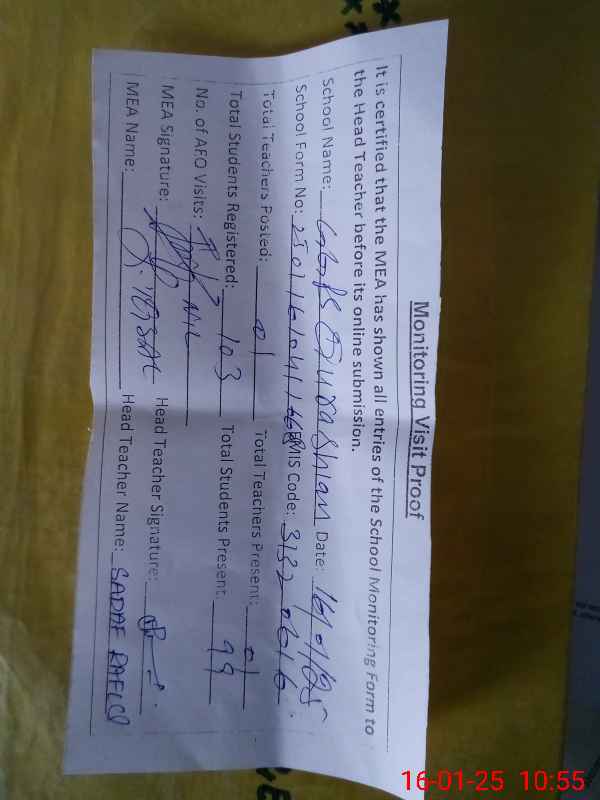 Monitoring Visit Proof
It is certified that the MEA has shown all entries of the School Monitoring Form to
the Head Teacher before its online submission.
School Name: GGPS Qurashian Date: 16/01/25
School Form No: EMIS Code: 31320616
Total Teachers Posted: 01 Total Teachers Present: 01
Total Students Registered: 103 Total Students Present: 99
No. of AEO Visits: NIL
MEA Signature: Head Teacher Signature:
MEA Name: Head Teacher Name: SADAF RAFIQ
16-01-25 10:55